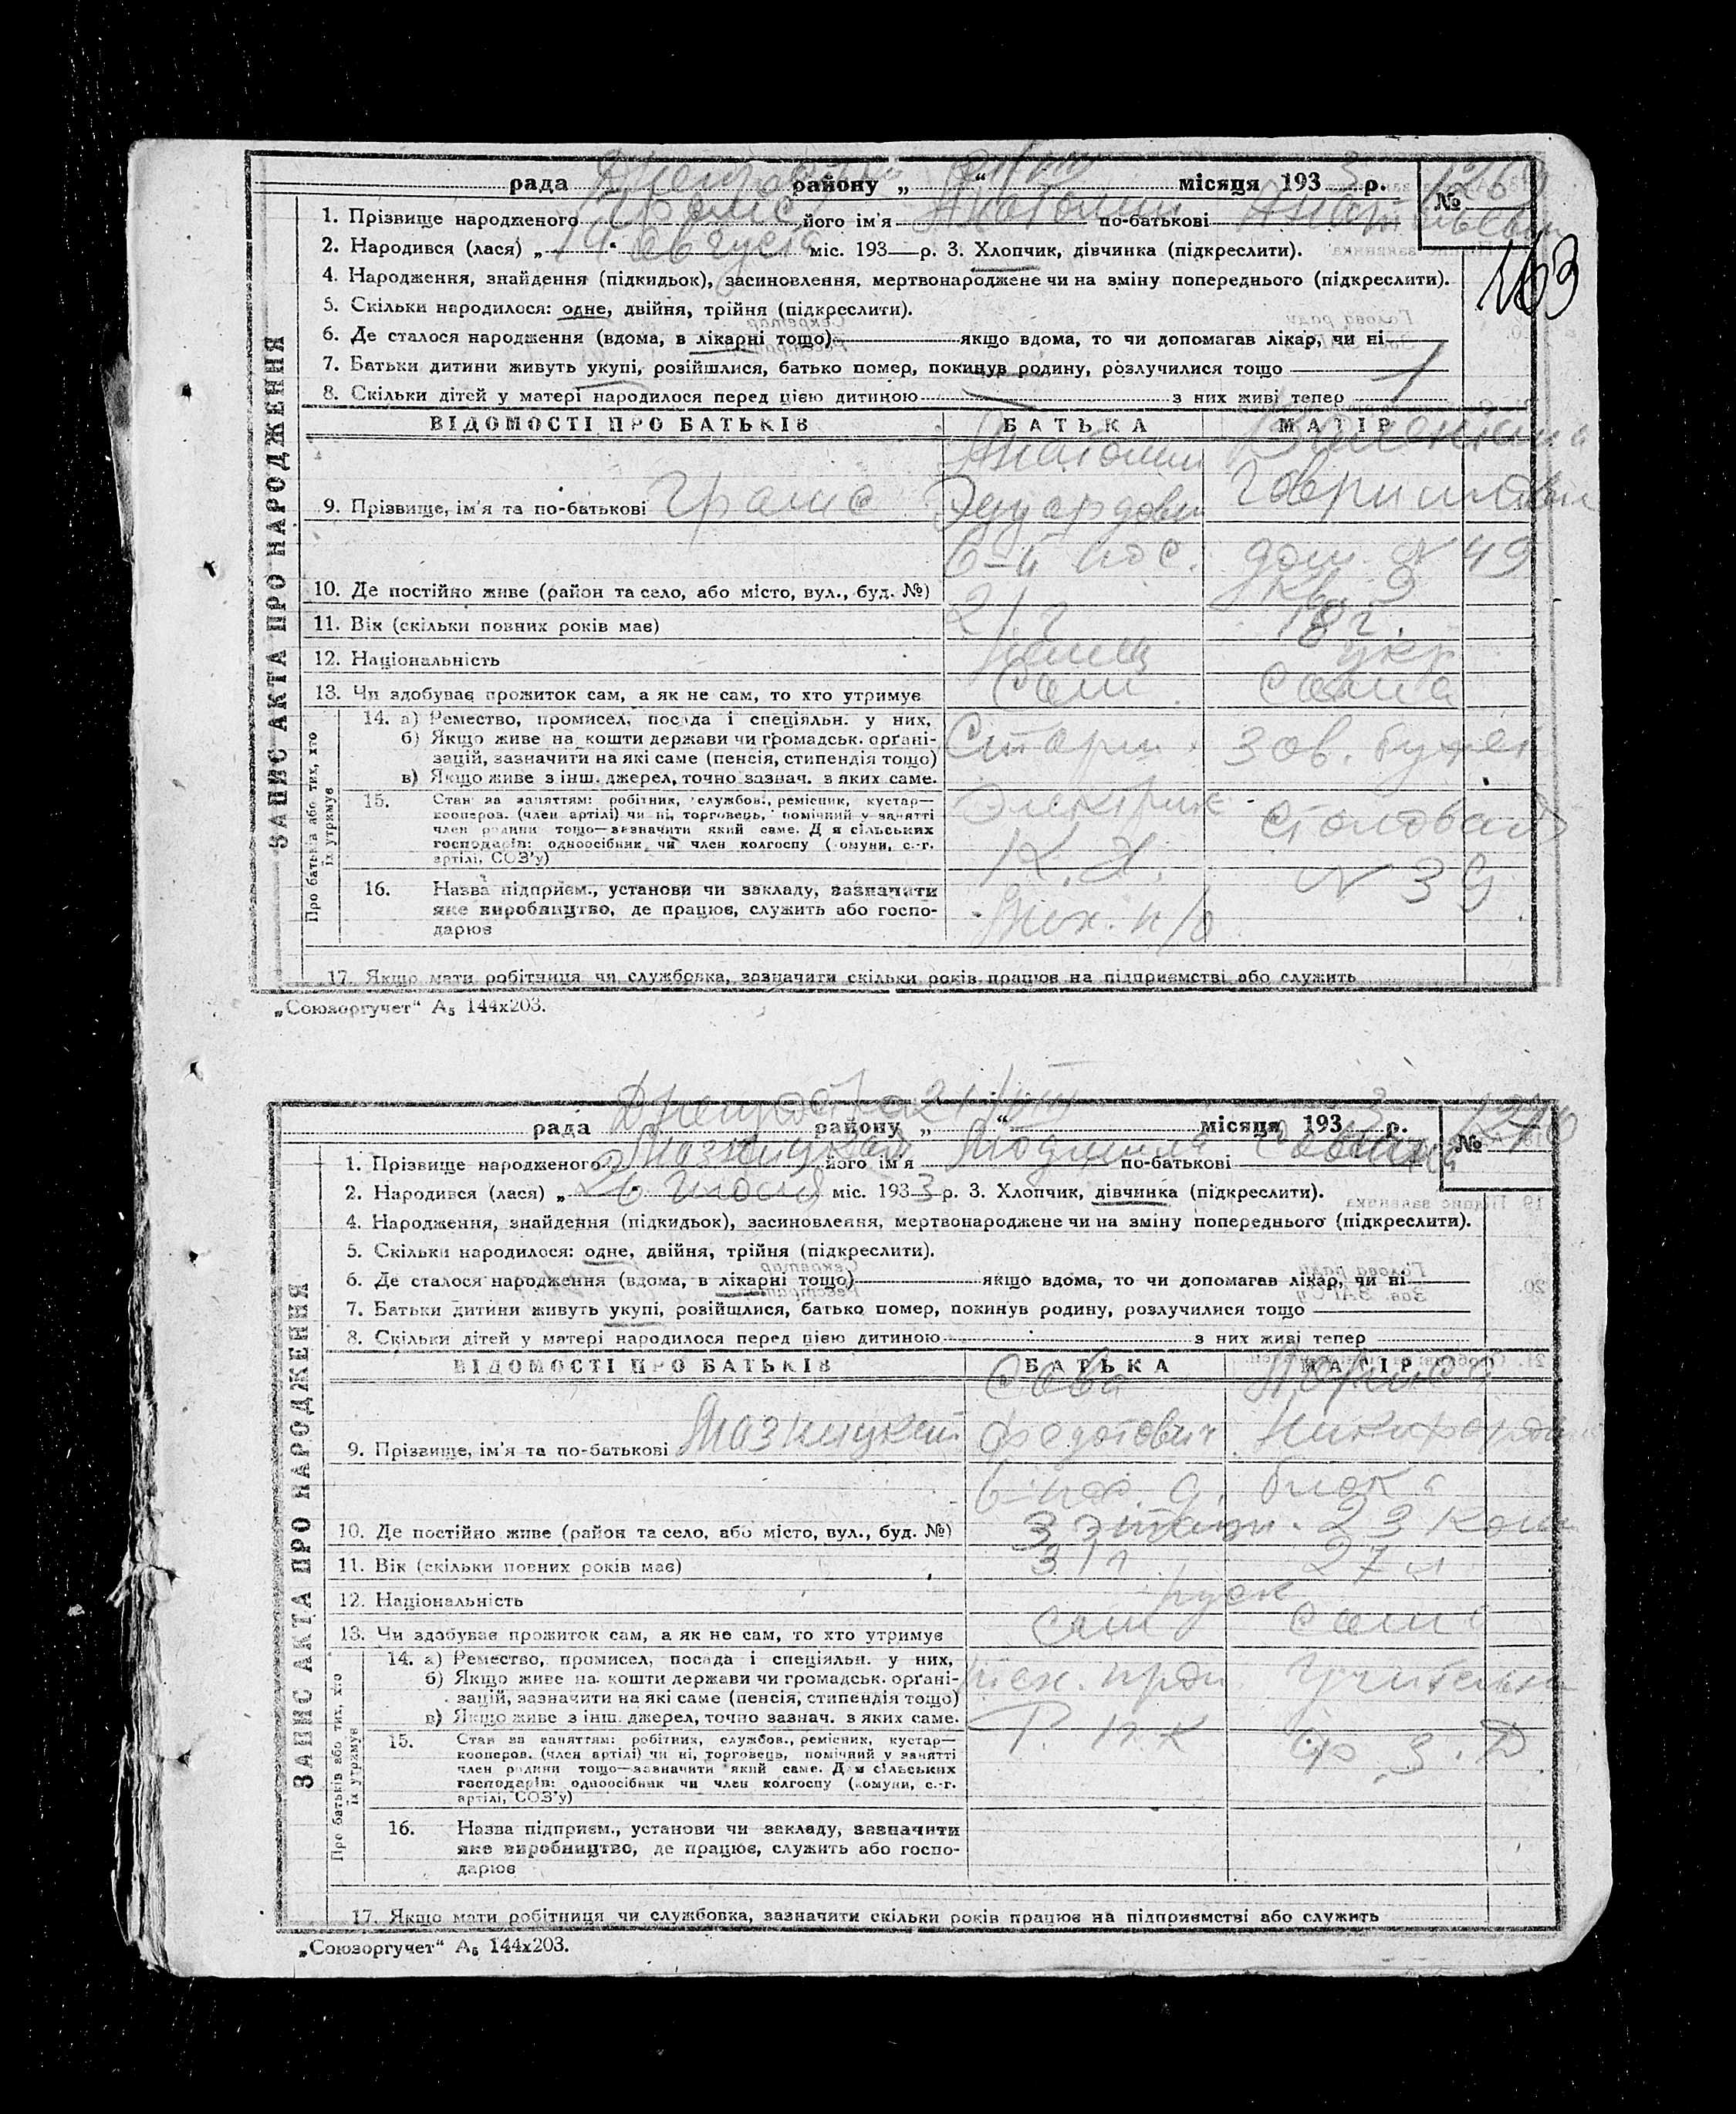 рада района „ “ місяця 193 3 р. № 1269
1. Прізвище народженого його ім'я Анатолий по-батькові
2. Народився (лася) „ 14 августа міс. 193 р. 3. Хлопчик, дівчинка (підкреслити).
163
4. Народження, знайдення (підкидьок), засиновлення, мертвонароджене чи на зміну попереднього (підкреслити).
5. Скільки народилося: одне, двійня, трійня (підкреслити).
6. Де сталося народження (вдома, в лікарні тощо) якщо вдома, то чи допомагав лікар, чи ні
7. Батьки дитини живуть укупі, розійшлися, батько помер, покинув родину, розлучилися тощо
8. Скільки дітей у матері народилося перед цією дитиною з них живі тепер 1
ЗАПИС АКТА ПРО НАРОДЖЕННЯ
ВІДОМОСТІ ПРО БАТЬКІВ БАТЬКА МАТІР
Анатолий Валентина
9. Прізвище, ім'я та по-батькові Эдуардович Гавриловна
6-й пос. дом № 49
10. Де постійно живе (район та село, або місто, вул., буд. №) кв. 9
11. Вік (скільки повних років має) 21 г 18 г.
12. Національність немец укр
13. Чи здобуває прожиток сам, а як не сам, то хто утримує сам сама
Про батьків або тих, хто їх утримує
14. а) Ремество, промисел, посада і спеціяльн. у них,
б) Якщо живе на кошти держави чи громадськ. органі- Старш. зав. буфет
зацій, зазначити на які саме (пенсія, стипендія тощо)
в) Якщо живе з інш. джерел, точно зазнач. з яких саме.
15. Стан за заняттям: робітник, службов., ремісник, кустар— электрик столовая
кооперов. (член артілі) чи ні, торговець, помічний у занятті
член родини тощо—зазначити який саме. Для сільських
господарів: одноосібник чи член колгоспу (комуни, с.-г.
артілі, СОЗ'у) К.Х. № 39
16. Назва підприєм., установи чи закладу, зазначити
яке виробництво, де працює, служить або госпо-
дарює
17. Якщо мати робітниця чи службовка, зазначити скільки років працює на підприємстві або служить
„Союзоргучет“ А₅ 144х203.
рада району „ 21/VIII “ місяця 193 3 р. № 1270
1. Прізвище народженого Мазницкая його ім'я Людмила по-батькові Саввична
2. Народився (лася) „ 26 июля міс. 193 3 р. 3. Хлопчик, дівчинка (підкреслити).
4. Народження, знайдення (підкидьок), засиновлення, мертвонароджене чи на зміну попереднього (підкреслити).
5. Скільки народилося: одне, двійня, трійня (підкреслити).
6. Де сталося народження (вдома, в лікарні тощо) якщо вдома, то чи допомагав лікар, чи ні
7. Батьки дитини живуть укупі, розійшлися, батько помер, покинув родину, розлучилися тощо
8. Скільки дітей у матері народилося перед цією дитиною з них живі тепер
ЗАПИС АКТА ПРО НАРОДЖЕННЯ
ВІДОМОСТІ ПРО БАТЬКІВ БАТЬКА МАТІР
Сава Лариса
9. Прізвище, ім'я та по-батькові Мазницкий Федотович
6 пос. д. блок
10. Де постійно живе (район та село, або місто, вул., буд. №) 3 этаж. 23 ком
11. Вік (скільки повних років має) 31 г 27 л
12. Національність руск
13. Чи здобуває прожиток сам, а як не сам, то хто утримує сам сама
Про батьків або тих, хто їх утримує
14. а) Ремество, промисел, посада і спеціяльн. у них,
б) Якщо живе на кошти держави чи громадськ. органі- учительн
зацій, зазначити на які саме (пенсія, стипендія тощо)
в) Якщо живе з інш. джерел, точно зазнач. з яких саме.
15. Стан за заняттям: робітник, службов., ремісник, кустар—
кооперов. (член артілі) чи ні, торговець, помічний у занятті
член родини тощо—зазначити який саме. Для сільських
господарів: одноосібник чи член колгоспу (комуни, с.-г.
артілі, СОЗ'у)
16. Назва підприєм., установи чи закладу, зазначити
яке виробництво, де працює, служить або госпо-
дарює
17. Якщо мати робітниця чи службовка, зазначити скільки років працює на підприємстві або служить
„Союзоргучет“ А₅ 144х203.